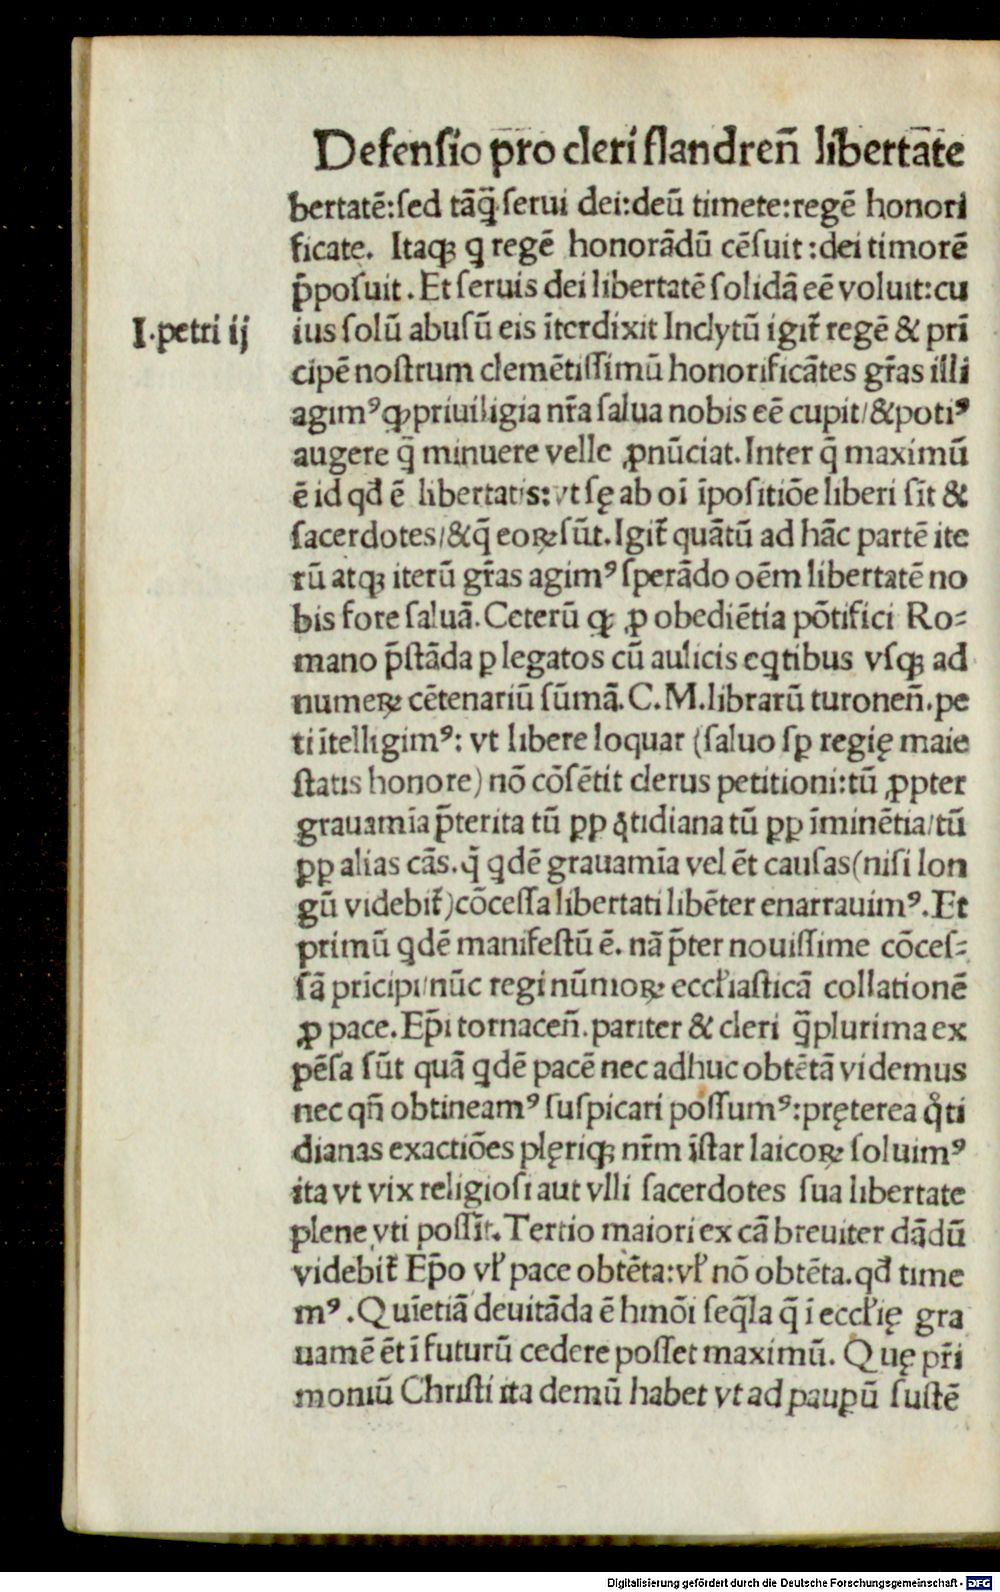 Defensio p̄ro cleri flandren̄ libertāte
bertatē:ſed tāꝗ̄ ſerui dei:deū timete:regē honori
ficate. Itaqꝫ ꝗ regē honorādū cēſuit:dei timorē
p̄poſuit. Et ſeruis dei libertatē ſolidā eē voluit:cu
I.petri ij
ius ſolū abuſū eis īterdixit Inclytū igit᷑ regē & prī
cipē noſtrum clemētiſſimū honorificātes gr̄as illi
agimꝰ ꝙ priuiligia nr̄a ſalua nobis eē cupit/&potiꝰ
augere q̄ minuere velle ꝓnūciat. Inter q̄ maximū
ē id qd̄ ē libertatis: vt ſę ab oī īpoſitiōe liberi ſīt &
ſacerdotes/&q̄ eoꝝ ſūt. Igit᷑ quātū ad hāc partē ite
rū atqꝫ iterū gr̄as agimꝰ ſperādo oēm libertatē no
bis fore ſaluā. Ceterū qꝫ ꝓ obediētia pōtifici Ro⸗
mano p̄ſtāda ꝑ legatos cū aulicis eꝗtibus vſqꝫ ad
numeꝝ cētenariū ſūmā. C. M. librarū turonen̄. pe
ti ītelligimꝰ: vt libere loquar (ſaluo ſꝑ regię maie
ſtatis honore) nō cōſētit clerus petitioni:tū ꝓpter
grauamīa p̄terita tū ꝓp qͦtidiana tū ꝓp īminētia/tū
ꝓp alias cās. q̄ ꝗdē grauamīa vel ēt cauſas(niſi lon
gū videbit᷑)cōceſſa libertati libēter enarrauimꝰ. Et
primū ꝗdē manifeſtū ē. nā p̄ter nouiſſime cōceſ⸗
ſā prīcipi/nūc regi nūmoꝝ eccl̄iaſticā collationē
ꝓ pace. Ep̄i tornacen̄. pariter & cleri ꝗ̄plurima ex
pēſa ſūt quā ꝗdē pacē nec adhuc obtētā videmus
nec qn̄ obtineamꝰ ſuſpicari poſſumꝰ:pręterea qͦti
dianas exactiōes plęriqꝫ nr̄m īſtar laicoꝝ ſoluimꝰ
ita vt vix religioſi aut vlli ſacerdotes ſua libertate
plene vti poſſīt. Tertio maiori ex cā breuiter dādū
videbit᷑ Ep̄o vl̄ pace obtēta:vl̄ nō obtēta. qd̄ time
mꝰ. Quīetiā deuitāda ē hmōi ſeq̄la q̄ ī eccl̄ię gra
uamē ēt ī futurū cedere poſſet maximū. Quę pr̄i
moniū Chriſti ita demū habet vt ad pauꝑū ſuſtē
Digitalisierung gefördert durch die Deutsche Forschungsgemeinschaft - DFG